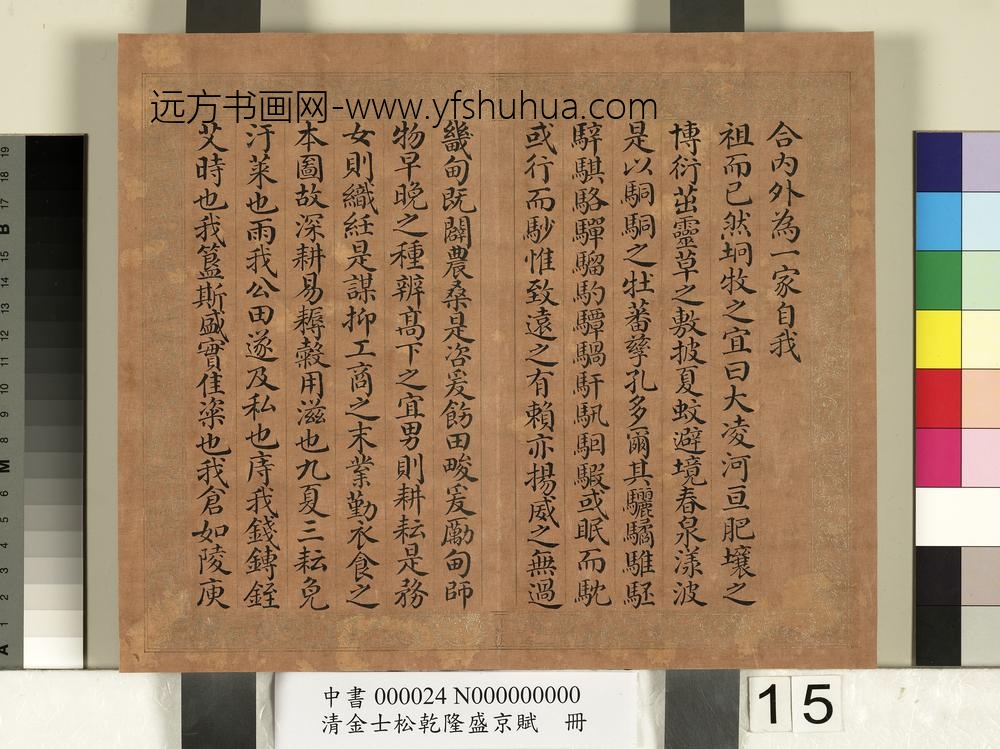 远方书画网-www.yfshuhua.com
合內外為一家自我
祖而已然坰牧之宜曰大凌河亘肥壤之
博衍茁靈草之敷披夏蚊避境春泉漾波
是以駉駉之牡蕃孳孔多爾其驪驈騅駓
騂騏駱驒騮馰驔騧馯馴駰騢或眠而馾
或行而䮧惟致遠之有賴亦揚威之無過
畿甸既闢農桑是咨爰飭田畯爰勵甸師
物早晚之種辨高下之宜男則耕耘是務
女則織紝是謀抑工商之末業勤衣食之
本圖故深耕易耨穀用滋也九夏三耘免
汙萊也雨我公田遂及私也庤我錢鎛銍
艾時也我簋斯盛實隹粢也我倉如陵庾
中書 000024 N000000000
清金士松乾隆盛京賦 冊
15
19
18
17
B
15
14
13
12
11
10
9
8
M
6
5
4
3
2
1
A